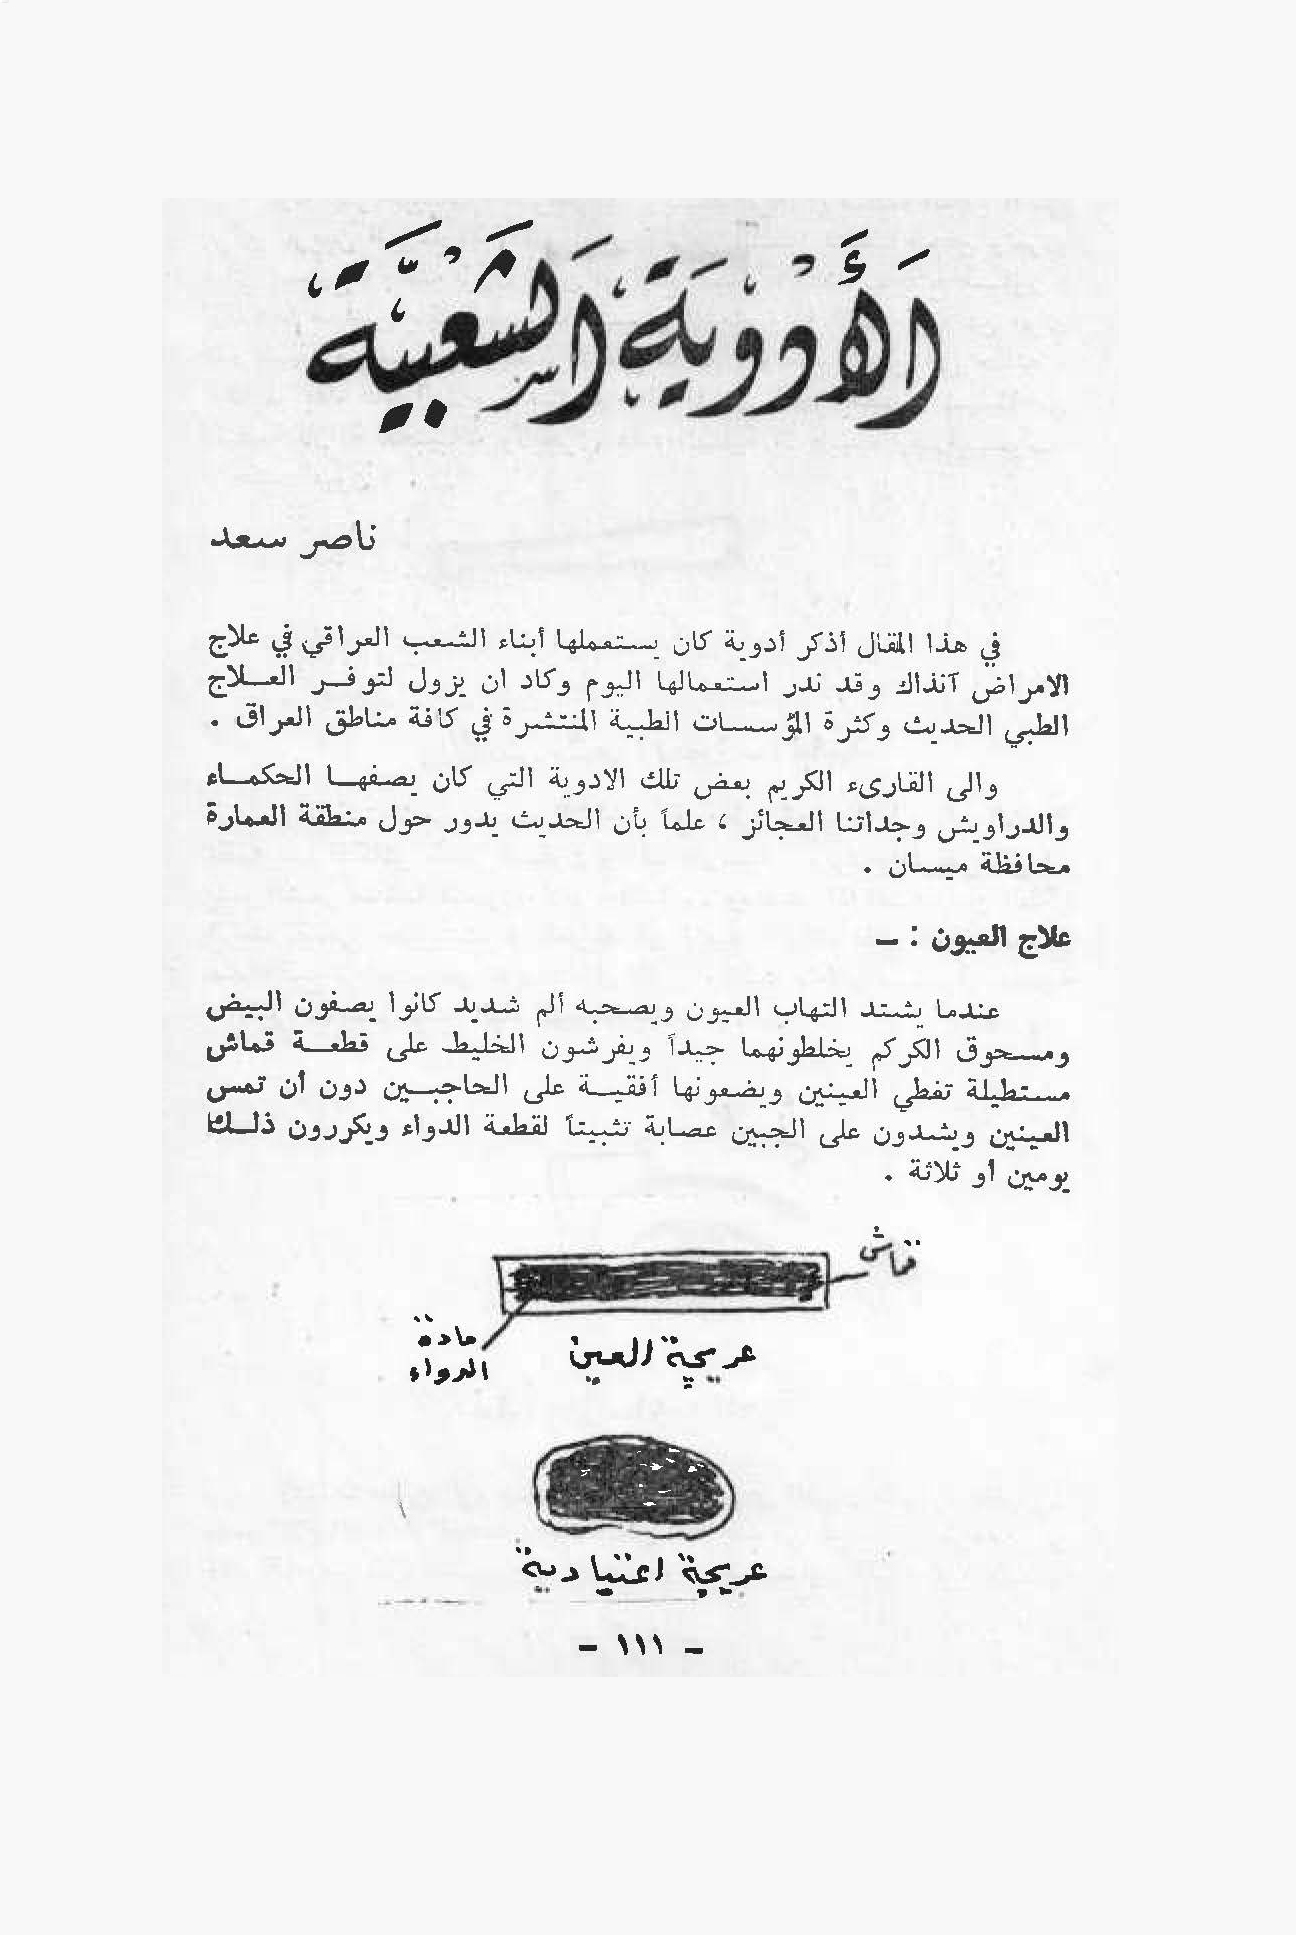 الأَدْوِيَةُ الشَّعْبِيَّةُ
ناصر سعد
في هذا المقال أذكر أدوية كان يستعملها أبناء الشعب العراقي في علاج
الامراض آنذاك وقد ندر استعمالها اليوم وكاد ان يزول لتوفر العلاج
الطبي الحديث وكثرة المؤسسات الطبية المنتشرة في كافة مناطق العراق .
والى القارىء الكريم بعض تلك الادوية التي كان يصفها الحكماء
والدراويش وجداتنا العجائز ، علماً بأن الحديث يدور حول منطقة العمارة
محافظة ميسان .
علاج العيون : ــ
عندما يشتد التهاب العيون ويصحبه ألم شديد كانوا يصفون البيض
ومسحوق الكركم يخلطونهما جيداً ويفرشون الخليط على قطعة قماش
مستطيلة تغطي العينين ويضعونها أفقية على الحاجبين دون أن تمس
العينين ويشدون على الجبين عصابة تثبيتاً لقطعة الدواء ويكررون ذلك
يومين أو ثلاثة .
قماش
مادة
الدواء
عريجة العين
عريجة اعتيادية
– ١١١ –